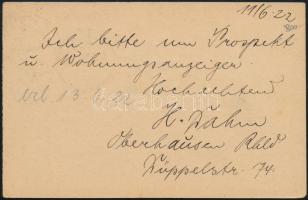 11/6 22
Ich bitte um Prospekt
u. Wohnungsanzeiger.
Hochachtend
13. 6. 22
H. Dahm
Oberhausen Rhld
Düppelstr. 74.